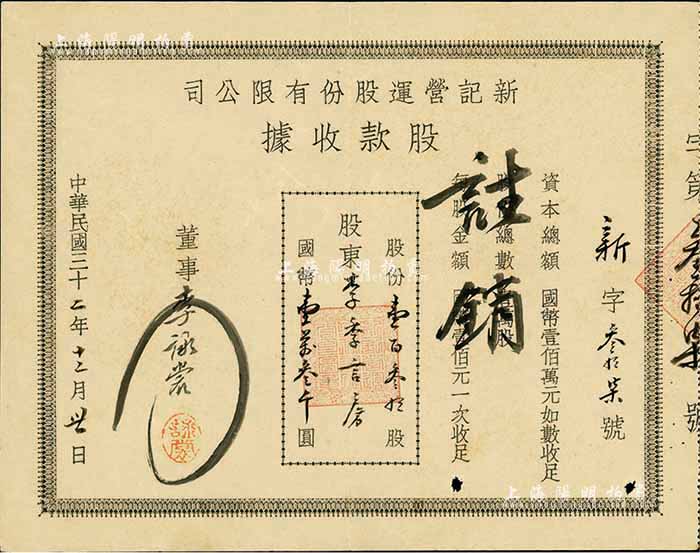 新記營運股份有限公司
股款收據
字第叁拾柒號
新字叁拾柒號
資本總額 國幣壹佰萬元如數收足
股份總數 壹萬股
每股金額 國幣壹佰元一次收足
註銷
股份壹百叁拾股
股東李季言房
國幣壹萬叁千圓
董事 李詠裳
中華民國三十二年十二月廿日
上海陽明拍賣
上海陽明拍賣
上海陽明拍賣